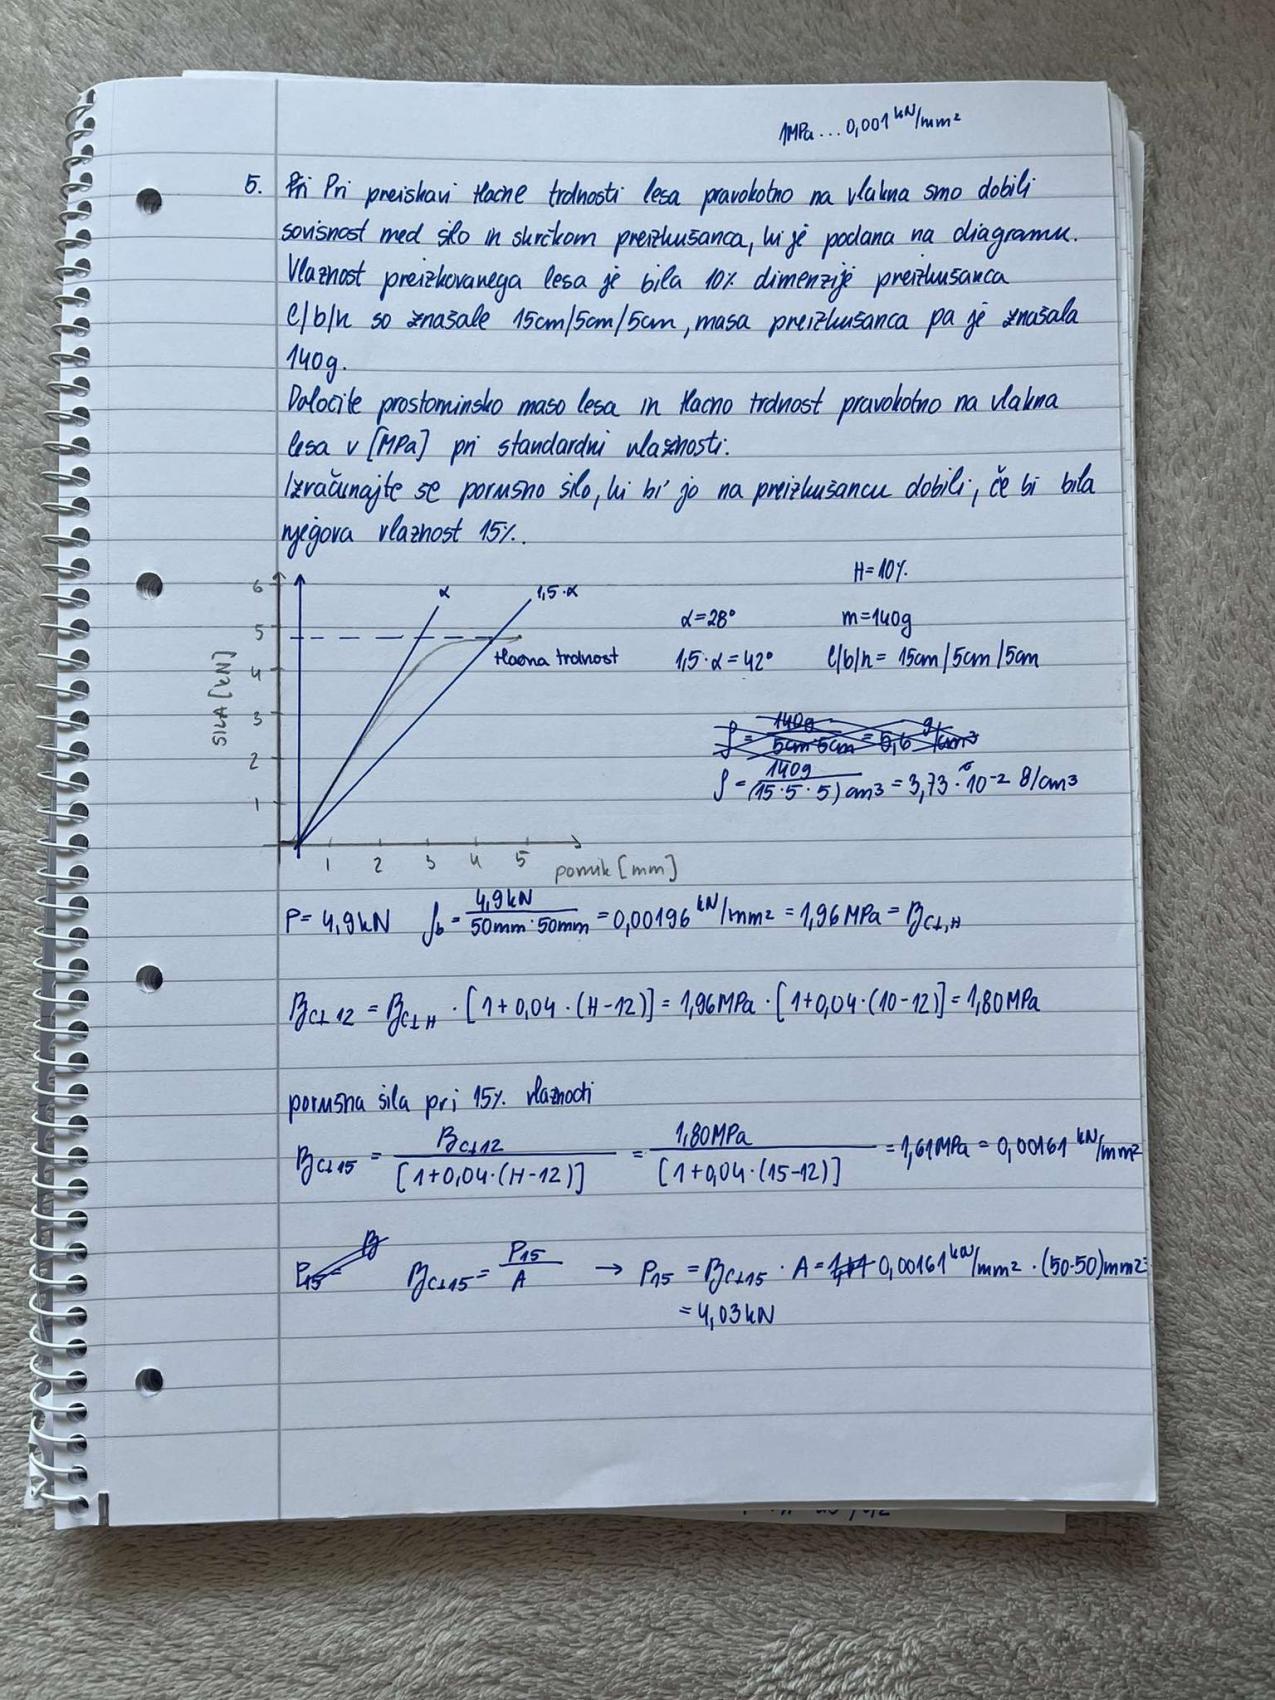 1MPa ... 0,001 kN/mm²
5. Pri Pri preiskavi tlačne trdnosti lesa pravokotno na vlakna smo dobili
sovisnost med silo in skrčkom preizkušanca, ki je podana na diagramu.
Vlažnost preizkovanega lesa je bila 10% dimenzije preizkušanca
l/b/h so znašale 15cm/5cm/5cm, masa preizkušanca pa je znašala
140g.
Določite prostorninsko maso lesa in tlačno trdnost pravokotno na vlakna
lesa v [MPa] pri standardni vlažnosti.
Izračunajte še porušno silo, ki bi jo na preizkušancu dobili, če bi bila
njegova vlažnost 15%.
H=10%
6 α 1,5·α
α=28° m=140g
5
tlačna trdnost 1,5·α=42° l/b/h= 15cm/5cm/5cm
4
SILA [kN]
3
ρ = 140g / 5cm·5cm = 5,6 g/cm³
2
ρ = 140g / (15·5·5) cm³ = 3,73·10⁻² g/cm³
1
1 2 3 4 5
pomik [mm]
P= 4,9kN fb = 4,9kN / 50mm·50mm = 0,00196 kN/mm² = 1,96MPa = βc⊥,H
βc⊥12 = βc⊥H · [1+0,04·(H-12)] = 1,96MPa · [1+0,04·(10-12)] = 1,80MPa
porušna sila pri 15% vlažnosti
βc⊥15 = βc⊥12 / [1+0,04·(H-12)] = 1,80MPa / [1+0,04·(15-12)] = 1,61MPa = 0,00161 kN/mm²
P15= β βc⊥15 = P15 / A → P15 = βc⊥15 · A = 0,00161 kN/mm² · (50·50)mm² =
= 4,03kN